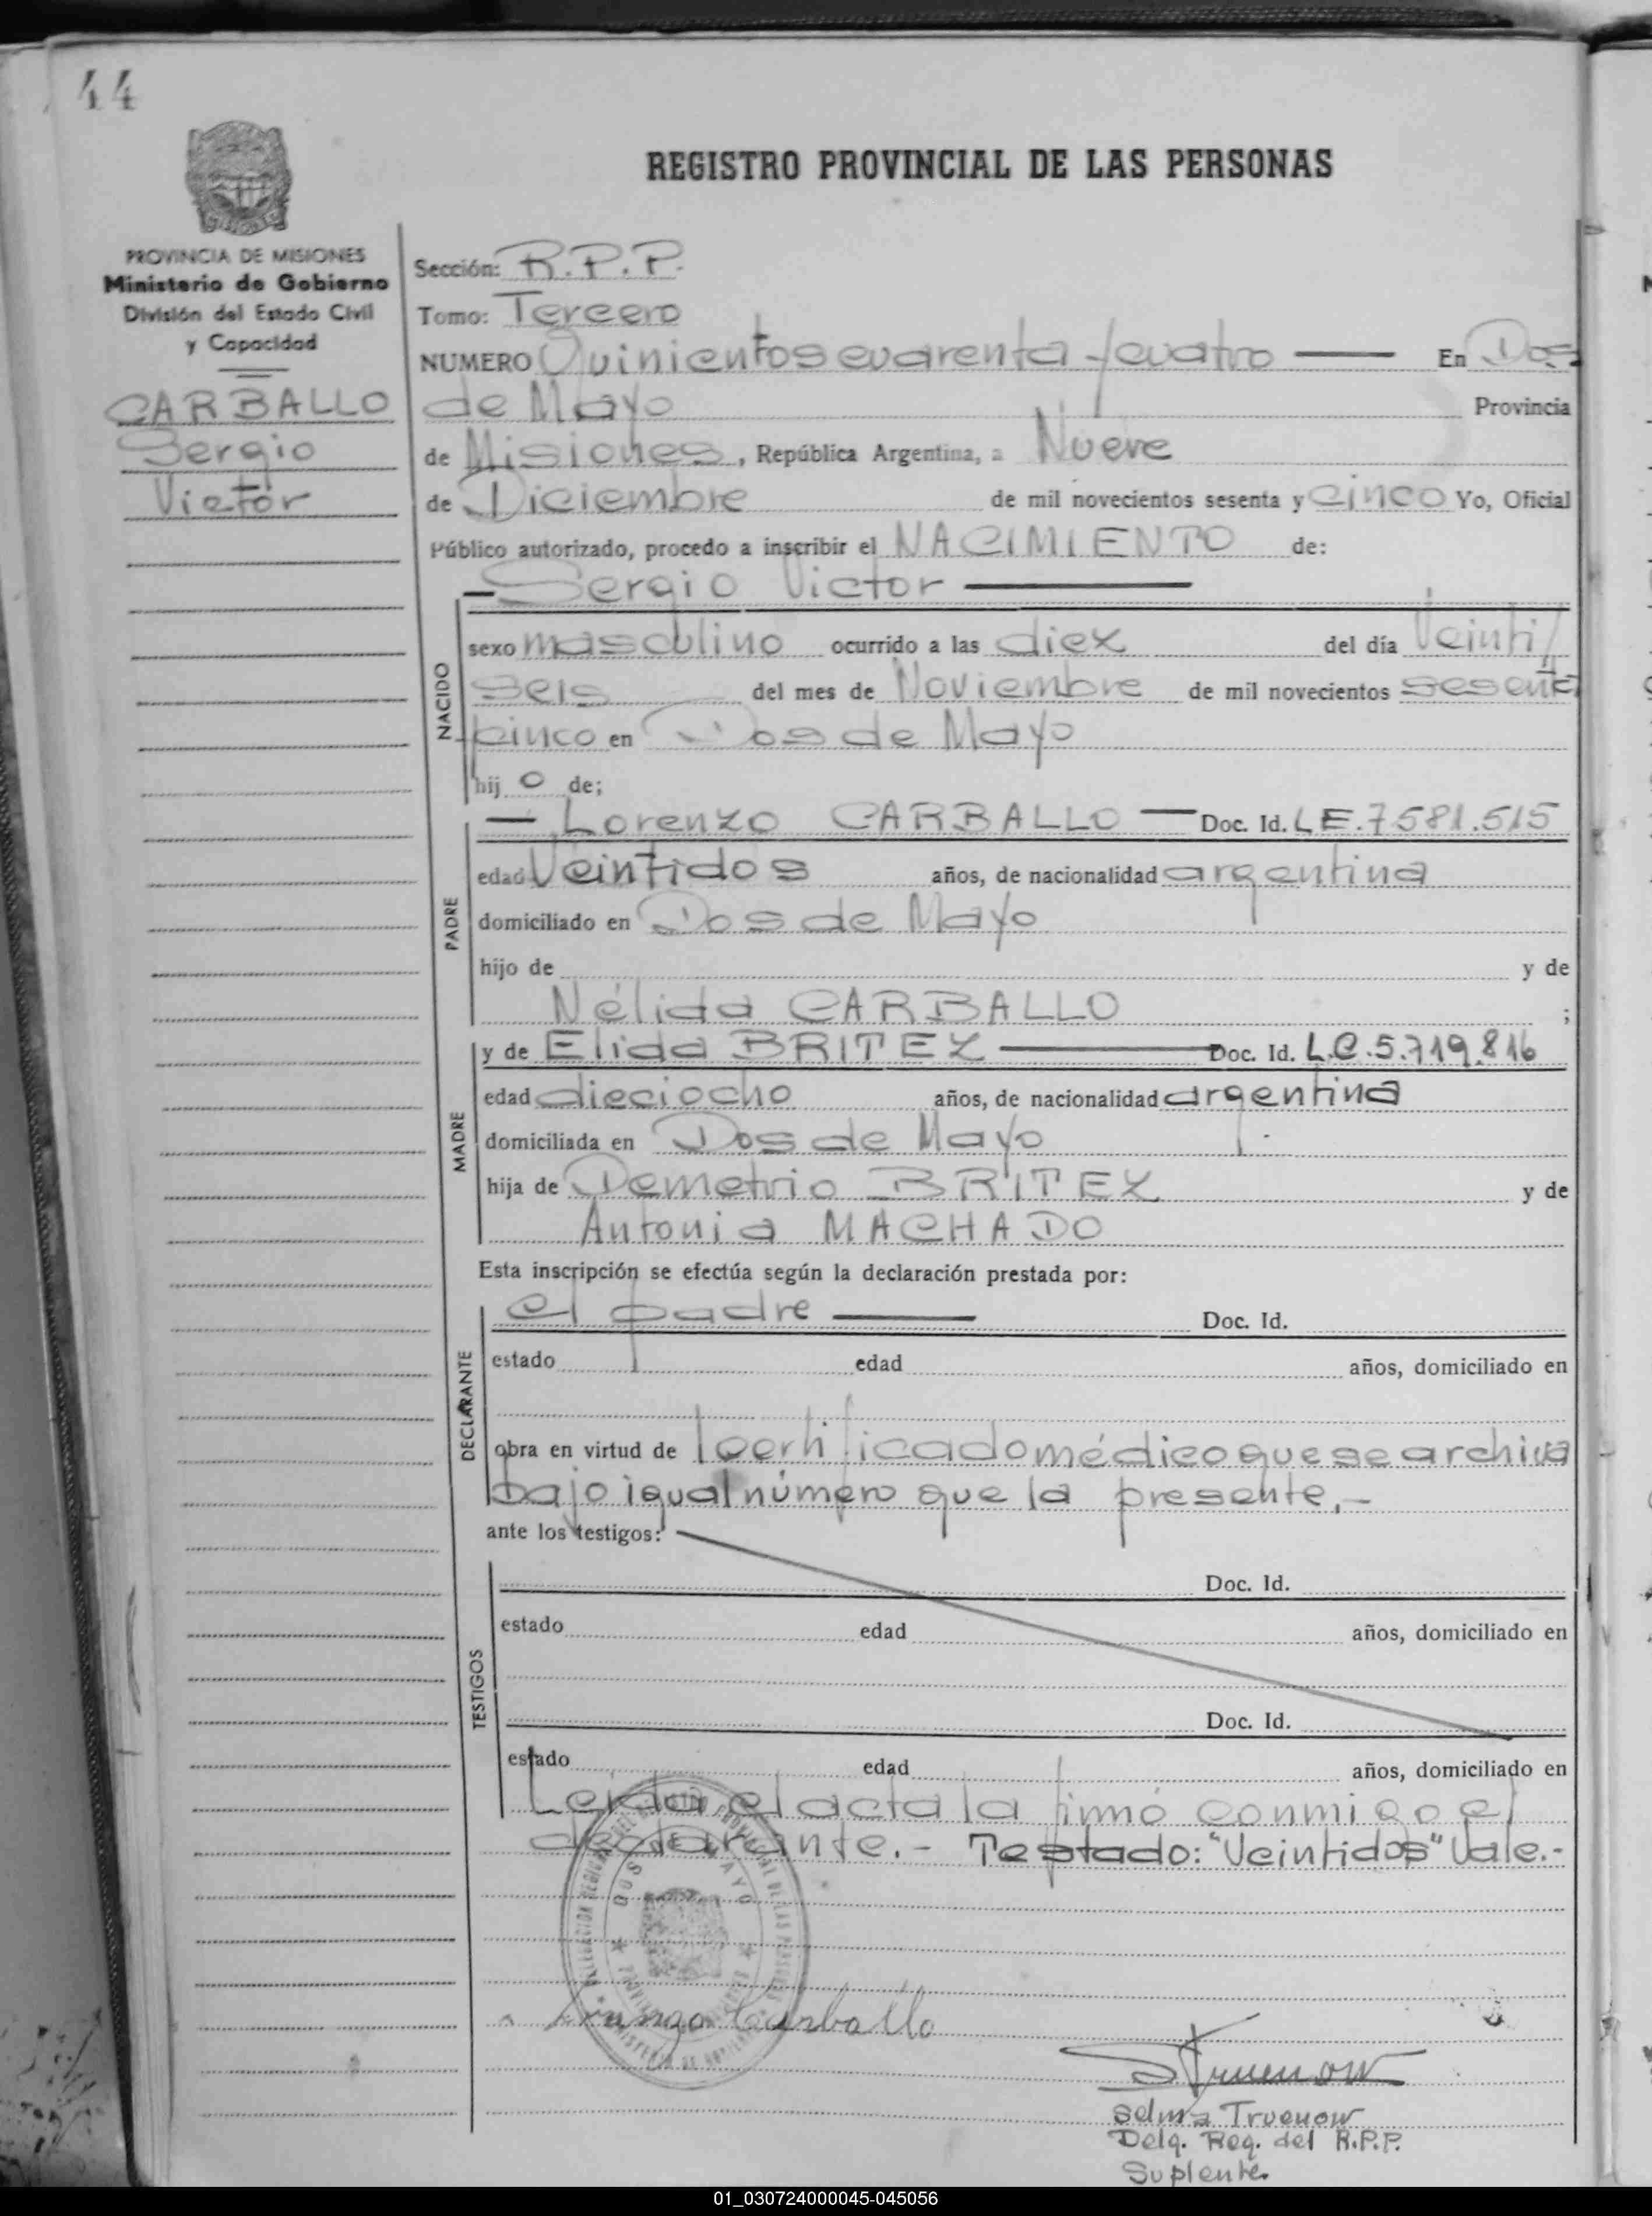 44
REGISTRO PROVINCIAL DE LAS PERSONAS
PROVINCIA DE MISIONES
Ministerio de Gobierno
División del Estado Civil
y Capacidad
CARBALLO
Sergio
Victor
Sección: R.P.P.
Tomo: Tercero
NUMERO Quinientos cuarenta y cuatro — En Dos
de Mayo Provincia
de Misiones, República Argentina, a Nueve
de Diciembre de mil novecientos sesenta y cinco Yo, Oficial
Público autorizado, procedo a inscribir el NACIMIENTO de:
— Sergio Victor —
NACIDO
sexo masculino ocurrido a las diez del día Veinti
seis del mes de Noviembre de mil novecientos sesenta
y cinco en Dos de Mayo
hij o de;
PADRE
— Lorenzo CARBALLO — Doc. Id. L E. 7581.515
edad Veintidos años, de nacionalidad argentina
domiciliado en Dos de Mayo
hijo de y de
Nélida CARBALLO ;
MADRE
y de Elida BRITEZ — Doc. Id. L.C. 5.719.816
edad dieciocho años, de nacionalidad argentina
domiciliada en Dos de Mayo
hija de Demetrio BRITEZ y de
Antonia MACHADO
Esta inscripción se efectúa según la declaración prestada por:
DECLARANTE
el padre — Doc. Id.
estado edad años, domiciliado en
obra en virtud de certificado médico que se archiva
bajo igual número que la presente.-
ante los testigos:
TESTIGOS
Doc. Id.
estado edad años, domiciliado en
Doc. Id.
estado edad años, domiciliado en
Leída el acta la firmó conmigo el
declarante.- Testado: "Veintidos" Vale.-
DOS DE MAYO
Carballo
STruenow
Selma Truenow
Delg. Reg. del R.P.P.
Suplente.
01_030724000045-045056